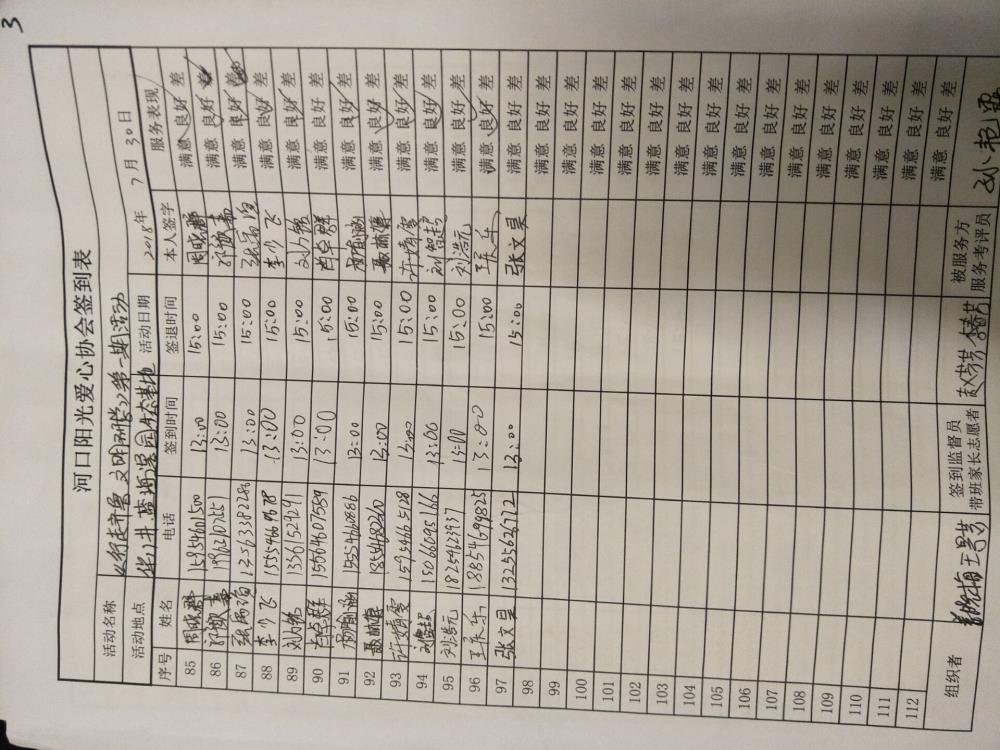 3
河口阳光爱心协会签到表
活动名称 《行走齐鲁 文明研学》第一期活动
活动地点 华八井 蓝海深园生态基地 活动日期 2018年 7月 30日
序号 姓名 电话 签到时间 签退时间 本人签字 服务表现
85 15954601500 13:00 15:00 满意 良好 差
86 13:00 15:00 满意 良好 差
87 13:00 15:00 满意 良好 差
88 李少飞 15554669678 13:00 15:00 李少飞 满意 良好 差
89 13361529291 13:00 15:00 满意 良好 差
90 肖卓群 15664607559 13:00 15:00 肖卓群 满意 良好 差
91 13:00 15:00 满意 良好 差
92 13:00 15:00 满意 良好 差
93 许婧雯 15954666528 13:00 15:00 许婧雯 满意 良好 差
94 刘智超 15066095166 13:00 15:00 刘智超 满意 良好 差
95 刘浩元 18254623937 13:00 15:00 刘浩元 满意 良好 差
96 18854699825 13:00 15:00 满意 良好 差
97 张文昊 13255626772 13:00 15:00 张文昊 满意 良好 差
98 满意 良好 差
99 满意 良好 差
100 满意 良好 差
101 满意 良好 差
102 满意 良好 差
103 满意 良好 差
104 满意 良好 差
105 满意 良好 差
106 满意 良好 差
107 满意 良好 差
108 满意 良好 差
109 满意 良好 差
110 满意 良好 差
111 满意 良好 差
112 满意 良好 差
组织者 签到监督员 被服务方
带班家长志愿者 服务考评员